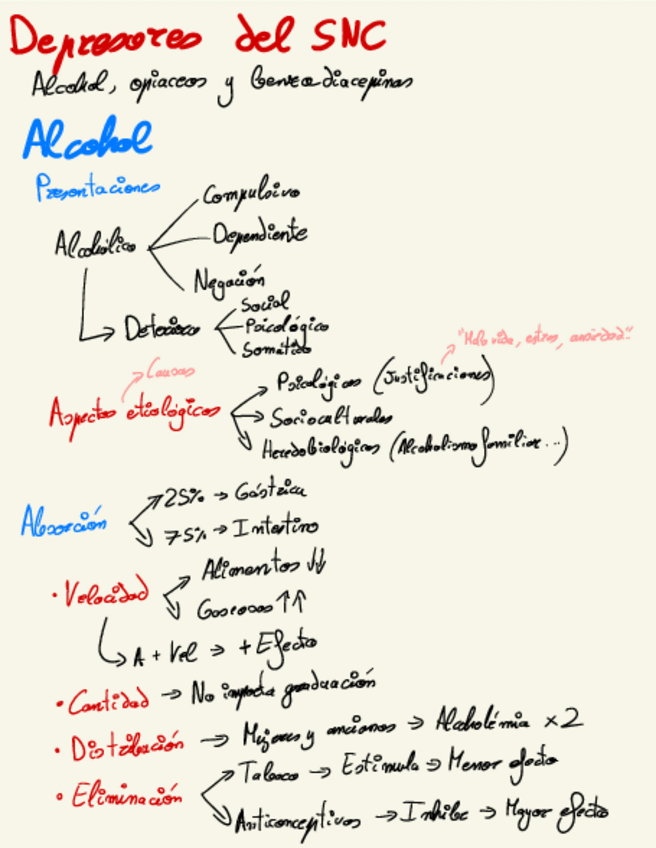 Depresores del SNC
Alcohol, opiaceos y benzodiacepinas
Alcohol
Presentaciones
Alcohólico
Compulsivo
Dependiente
Negación
Deterioro
Social
Psicológico
Somático
Aspectos etiológicos
Causas
Psicológicos (Justificaciones)
"Mala vida, estres, ansiedad."
Socioculturales
Heredobiológicos (Alcoholismo familiar...)
Absorción
25% → Gástrica
75% → Intestino
• Velocidad
Alimentos ↓↓
Gaseosas ↑↑
A + Vel → + Efecto
• Cantidad → No importa graduación
• Distribución → Mujeres y ancianos → Alcoholémia x2
• Eliminación
Tabaco → Estimula → Menor efecto
Anticonceptivos → Inhibe → Mayor efecto